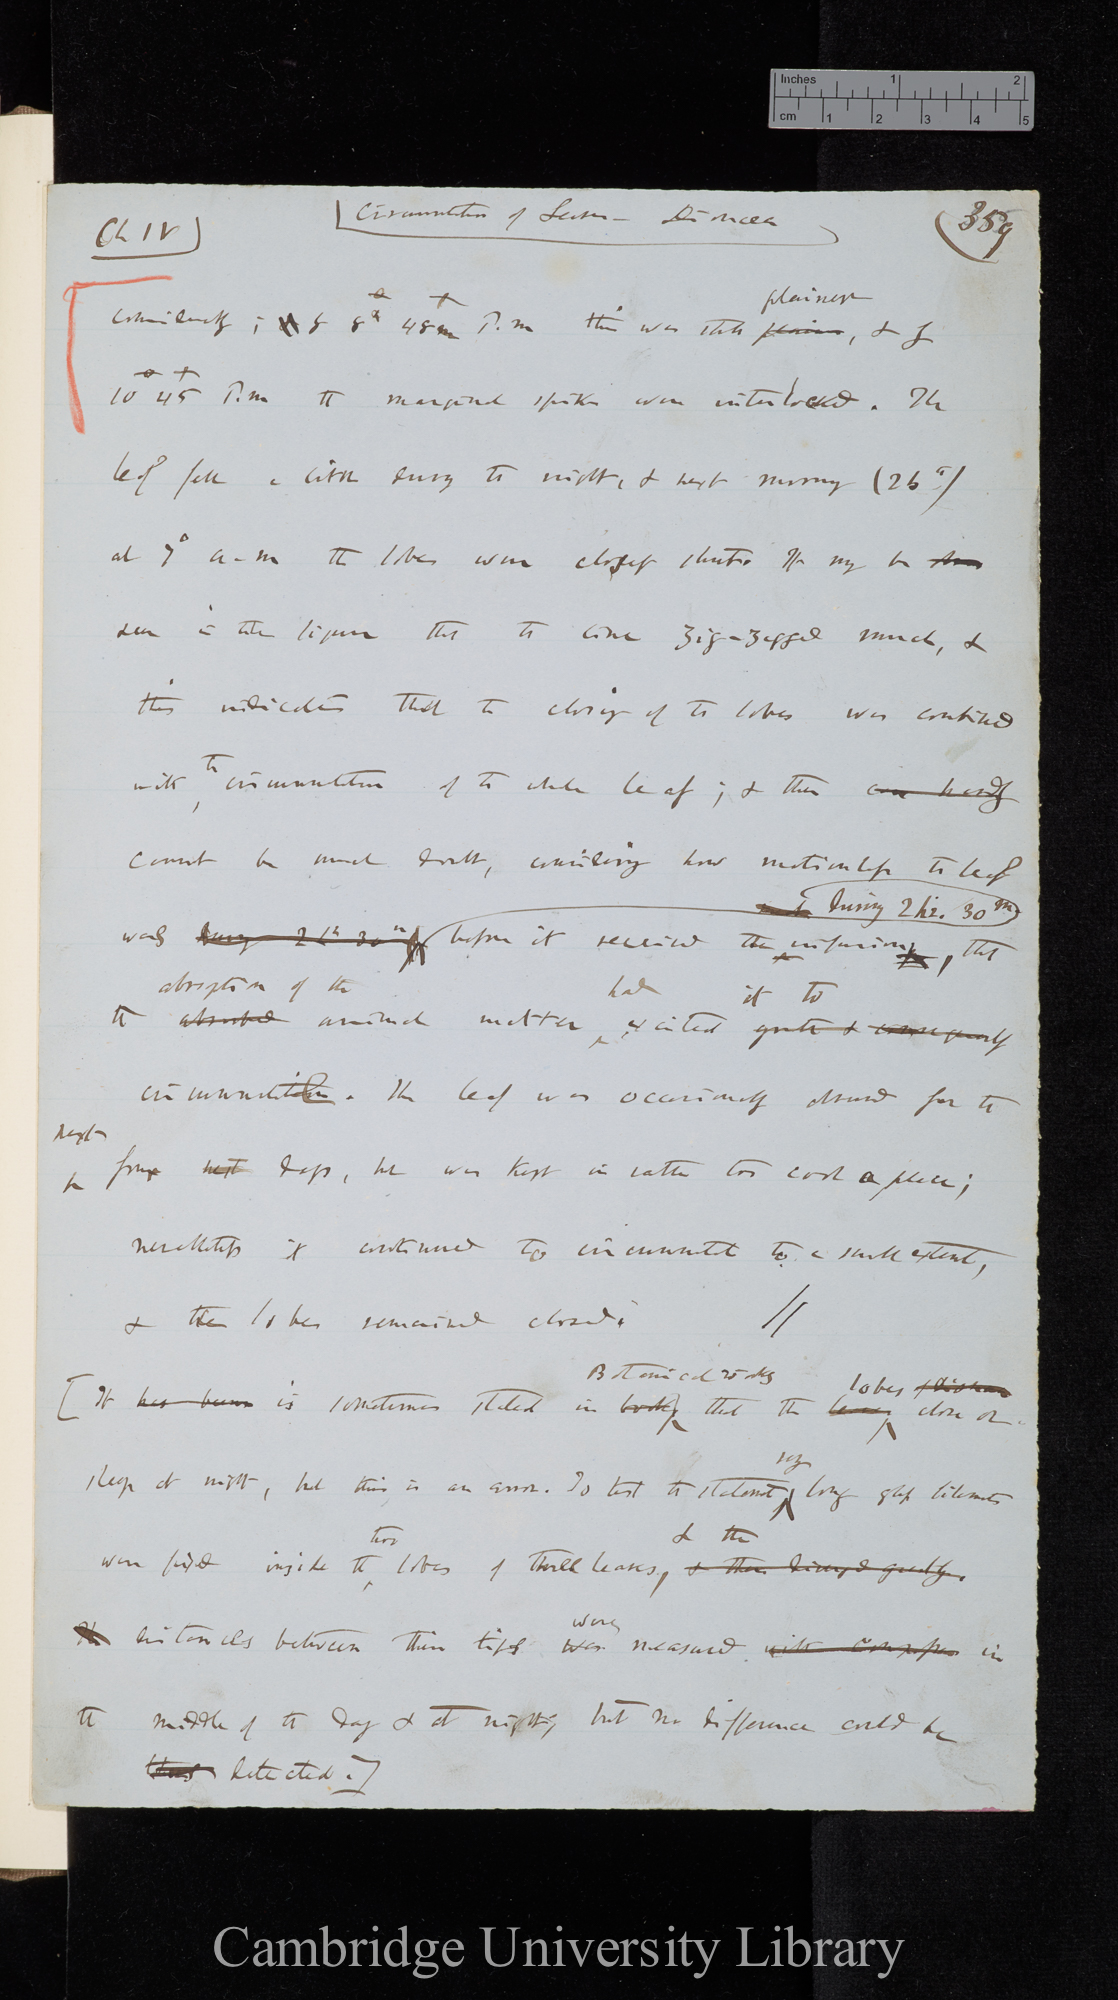 Inches 1 2
cm 1 2 3 4 5
Ch IV
Circumnutation of Leaves — Dionaea
359
plainer
considerably; by 8h 45m P.m this was still plainer, & by
10 45 P.m the marginal spikes were interlocked. The
leaf fell a little during the night, & next morning (26th)
at 7° a.m the lobes were closely shut. It may be
seen in the figure that the line zig-zagged much, &
this indicates that the closing of the lobes was combined
the
with circumnutation of the whole leaf; & there can hardly
cannot be much doubt, considering how motionless the leaf
during 2 hr. 30m
was during 2h 30m before it received the infusion, that
absorption of the had it to
the absorbed animal matter excited greatly & consequently
circumnutate. The leaf was occasionally observed for the
next
four next days, but was kept in rather too cool a place;
nevertheless it continued to circumnutate to a small extent,
& the lobes remained closed.
Botanical works lobes
[It has been is sometimes stated in books that the leaves close or
sleep at night, but this is an error. To test the statement, long glass filaments
two & the
were fixed inside the lobes of three leaves, & these diverged greatly.
were
The distances between their tips was measured with compasses in
the middle of the day & at night; but no difference could be
detected.]
Cambridge University Library